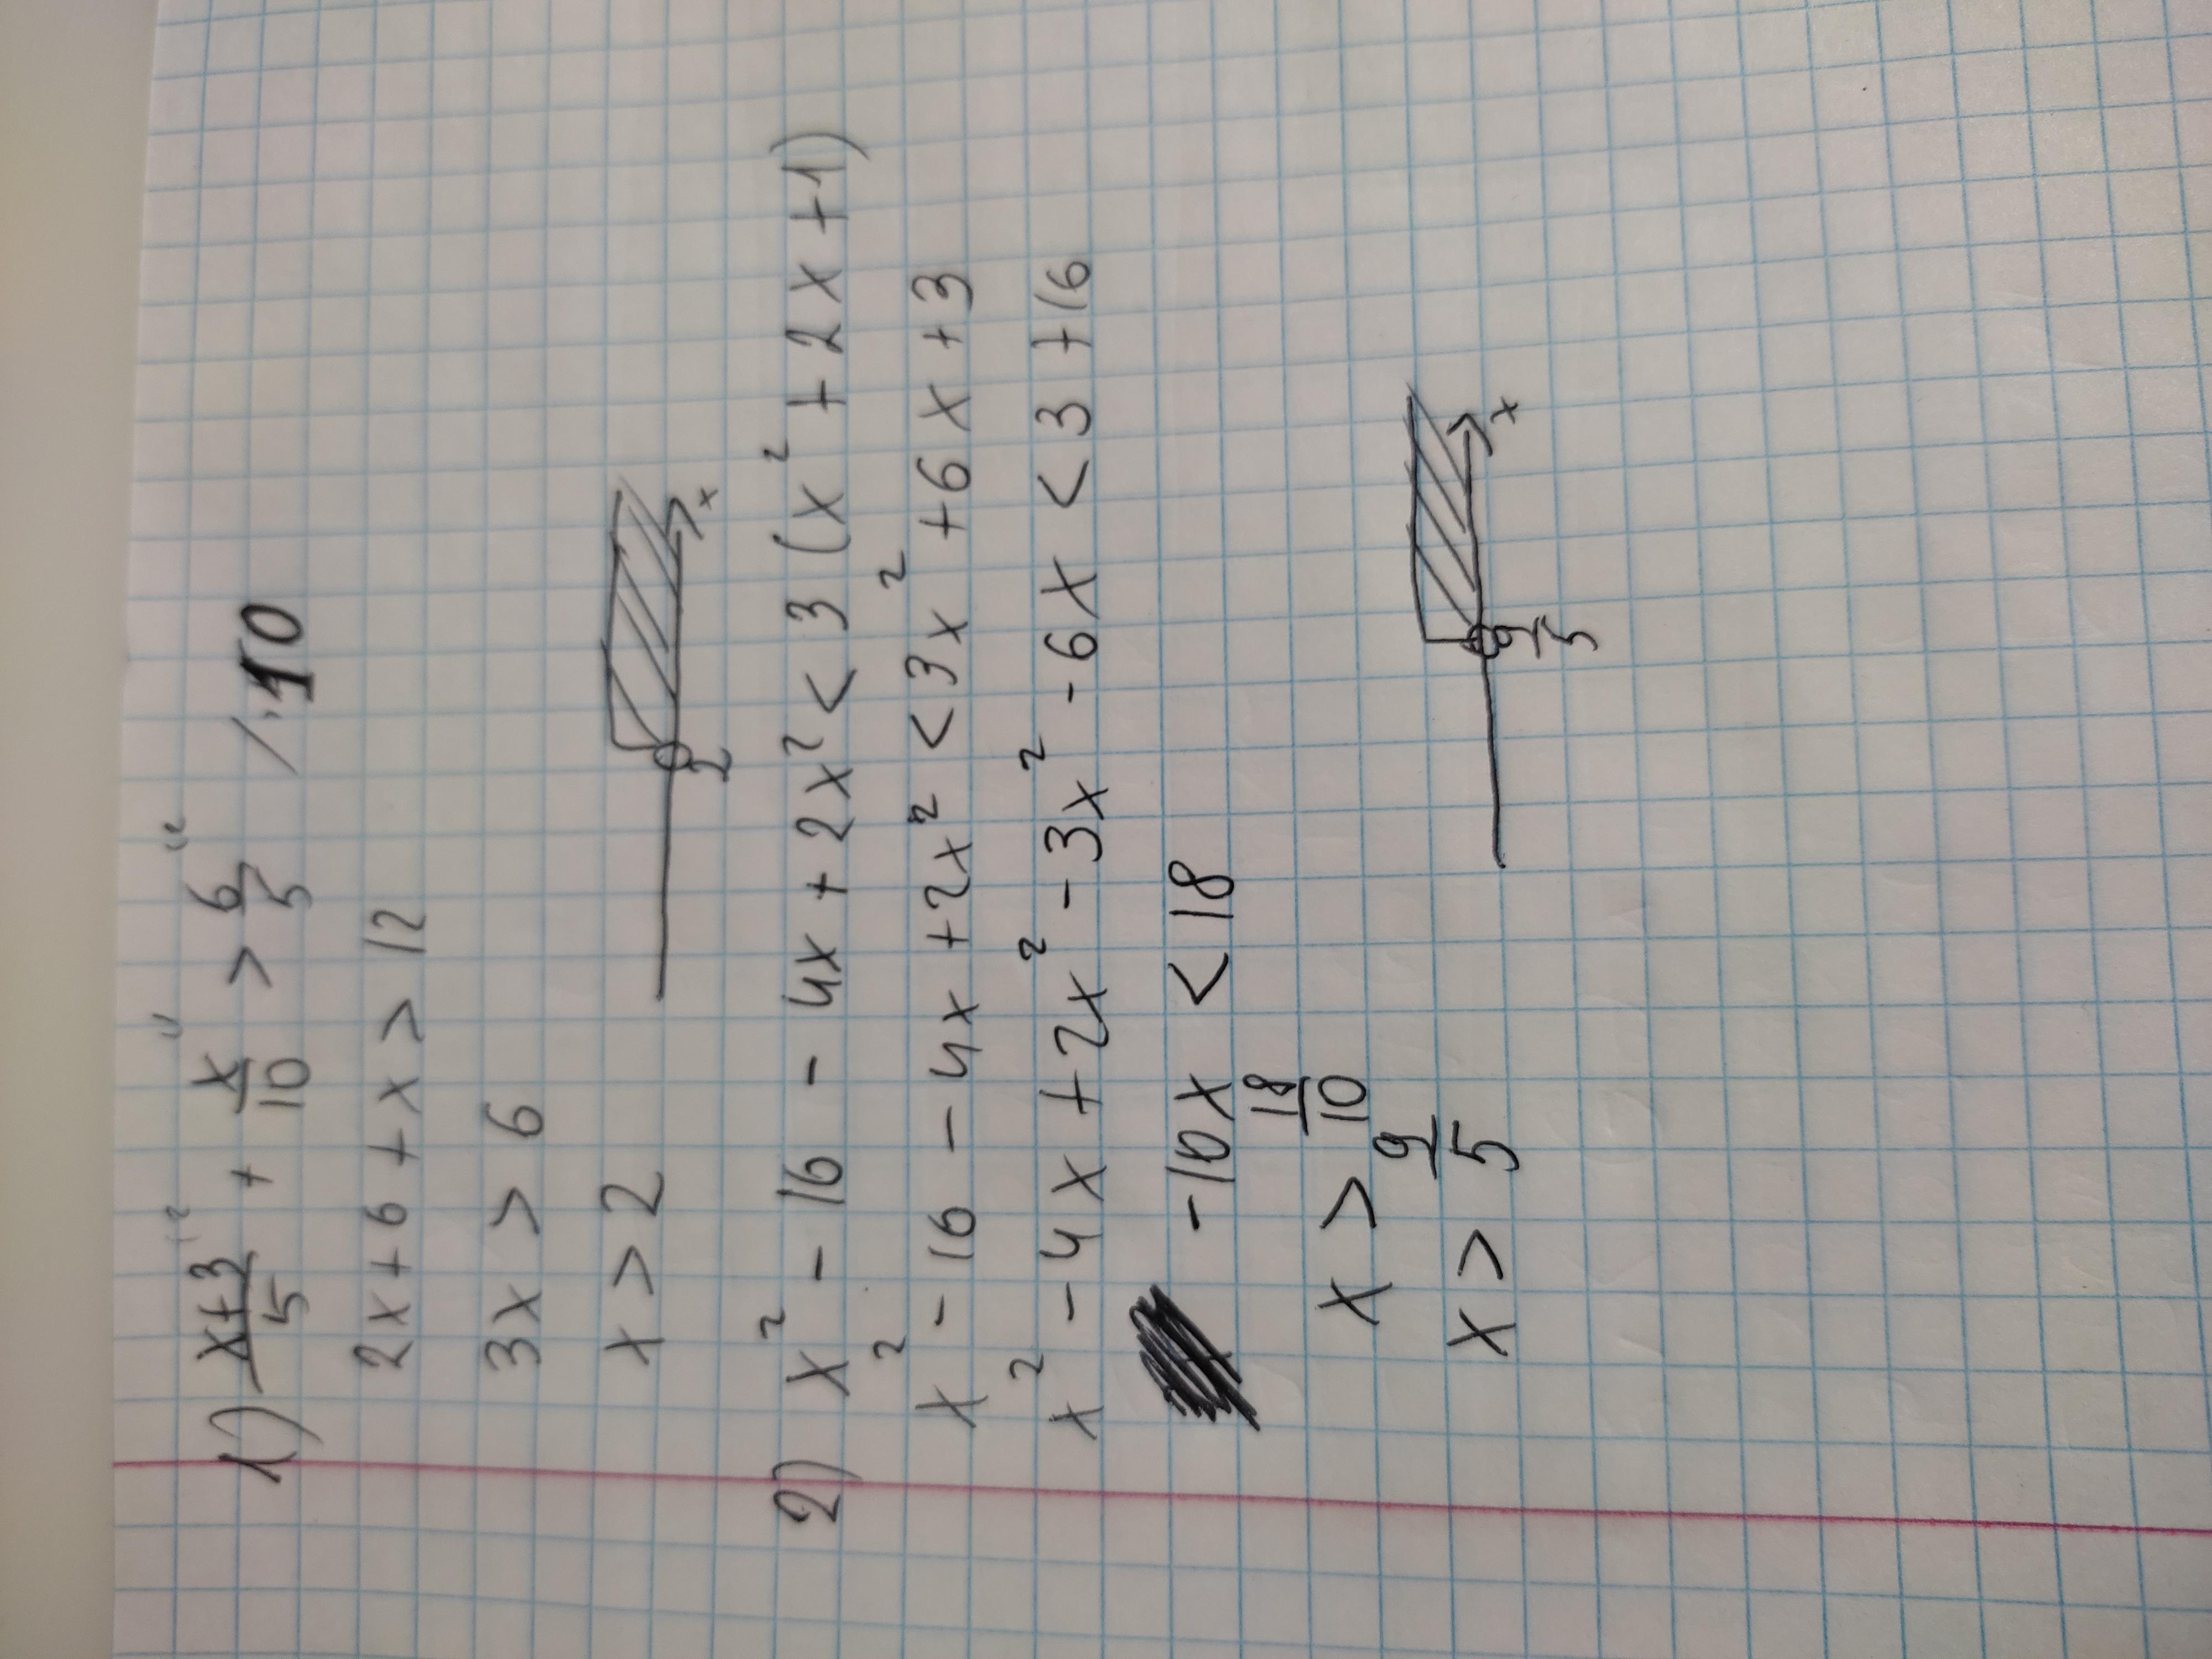 1) (x+3)/5 "2 + x/10 "1 > 6/5 "2 / ·10
2x+6+x > 12
3x > 6
x > 2
2
x
2) x² - 16 - 4x + 2x² < 3 (x² + 2x +1)
x² - 16 - 4x + 2x² < 3x² + 6x + 3
x² - 4x + 2x² - 3x² - 6x < 3 + 16
-10x < 18
x > 18/10
x > 9/5
9/5
x